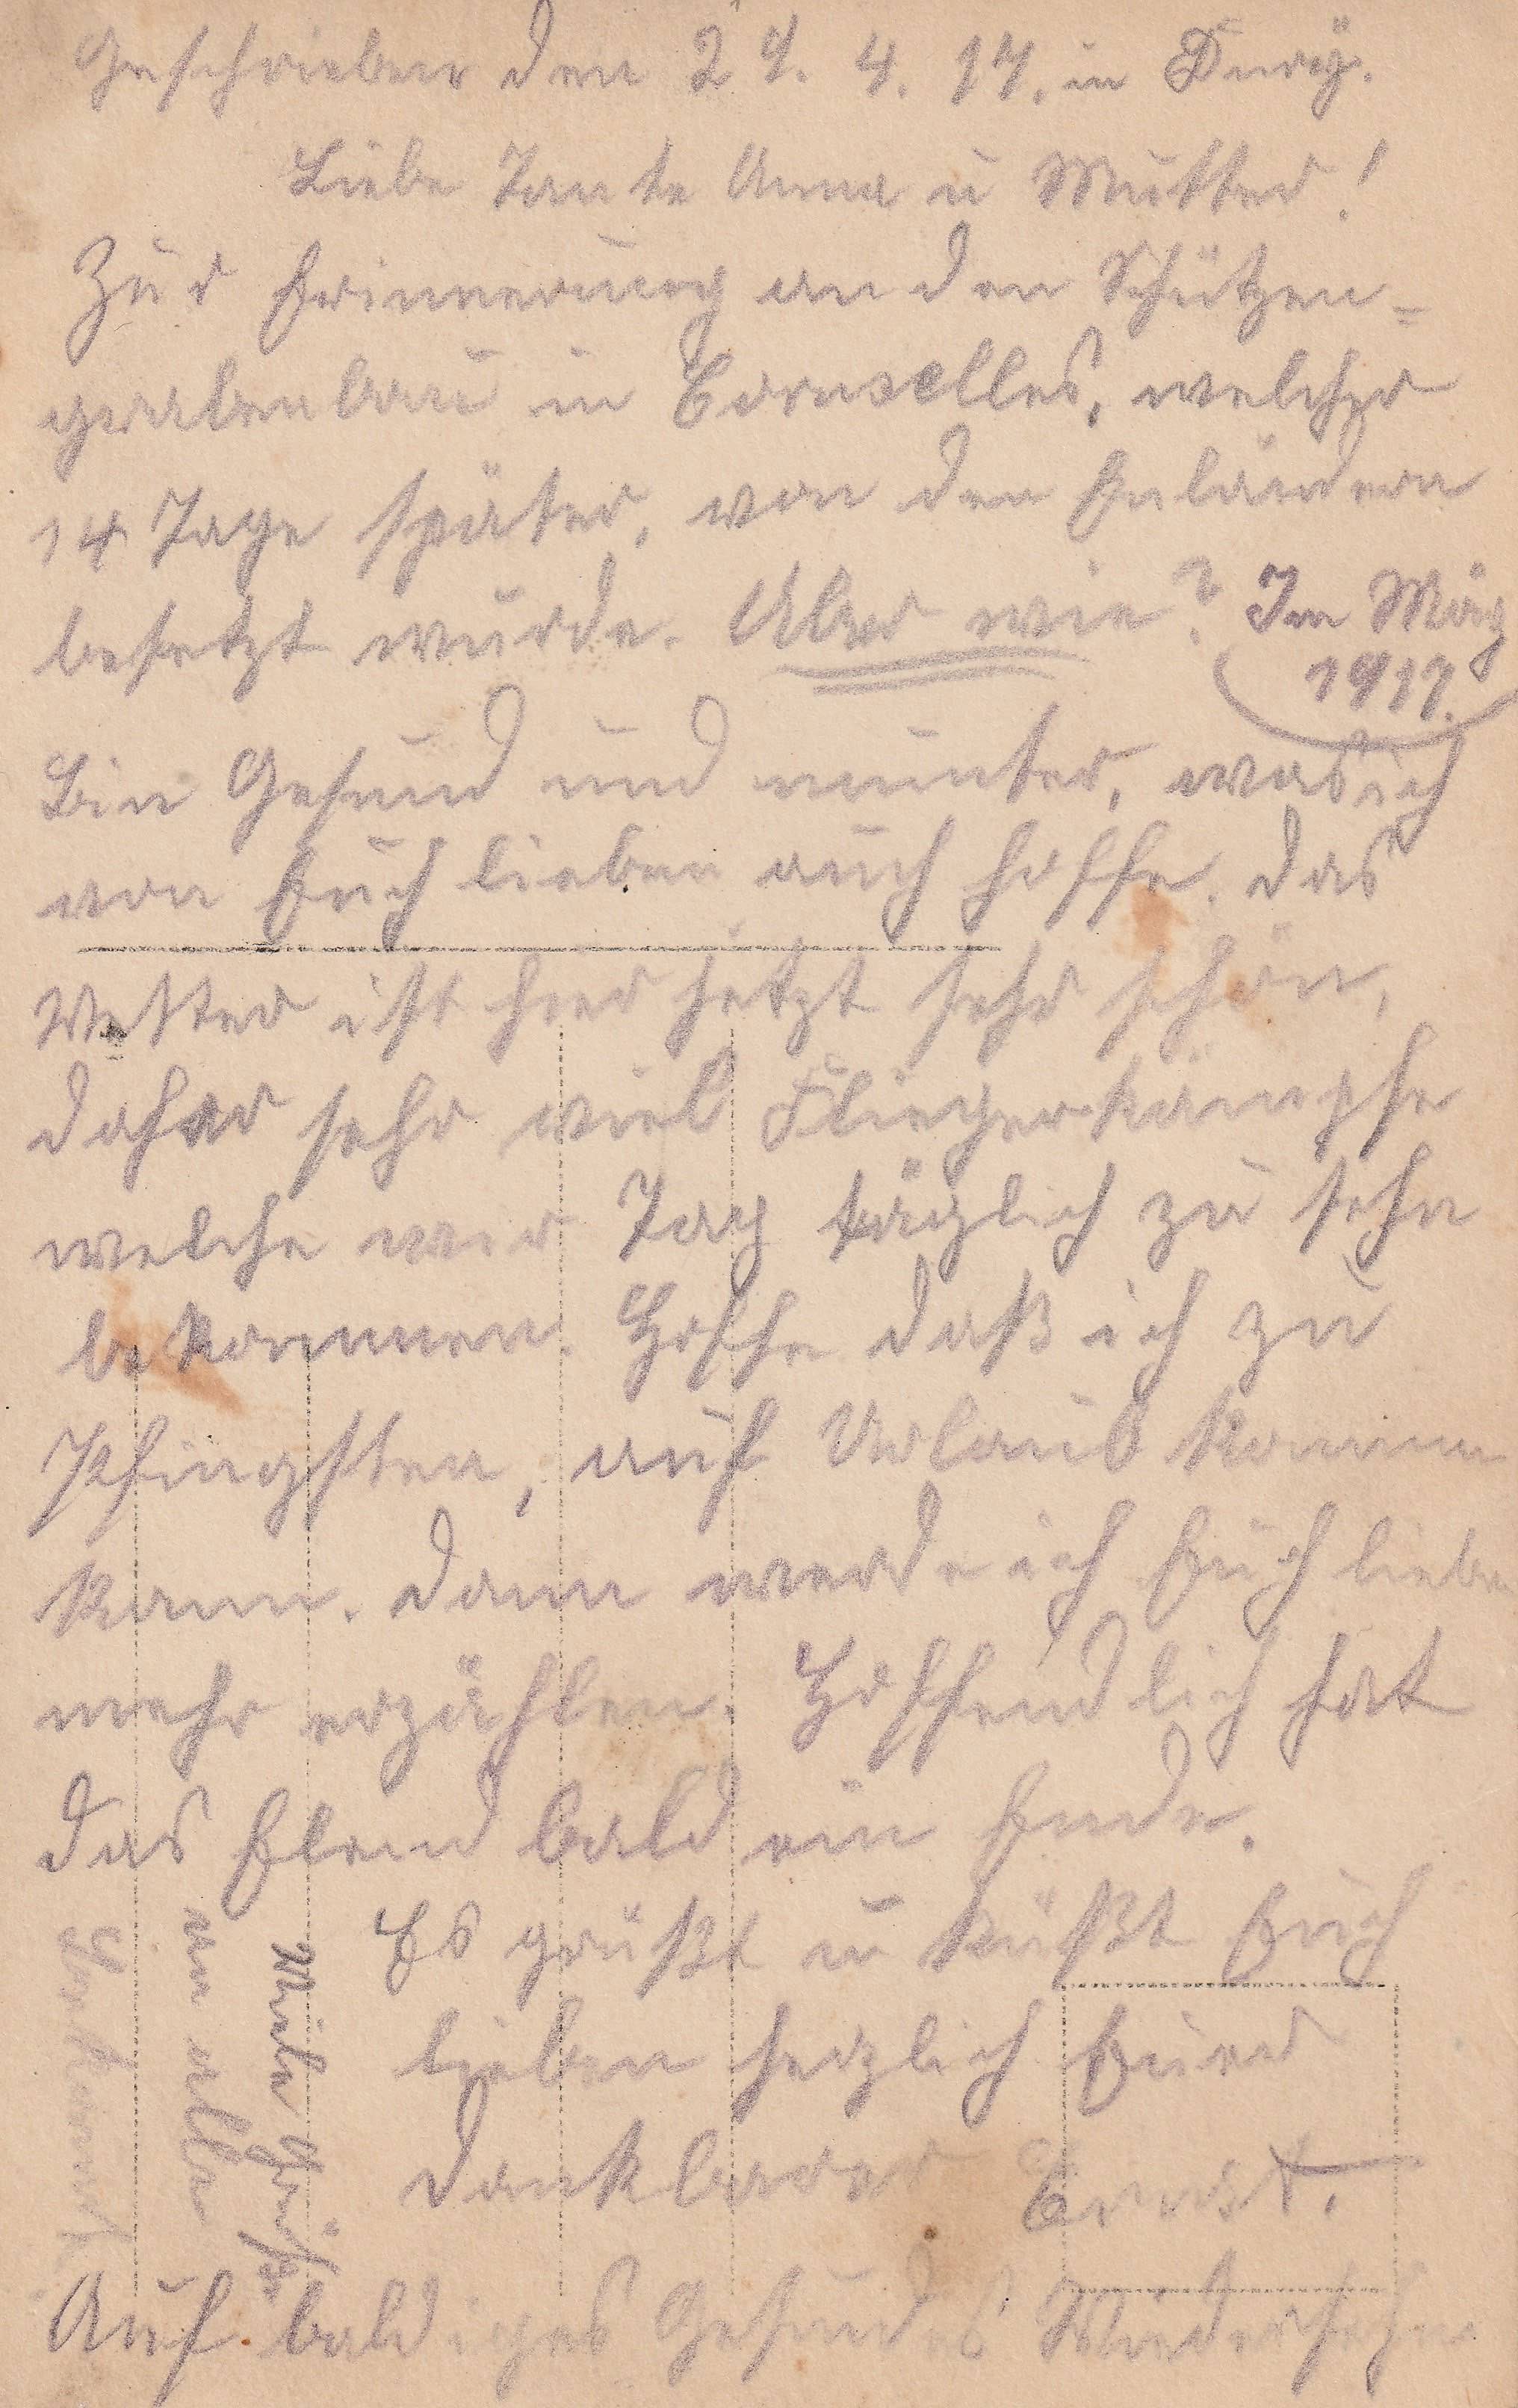 Geschrieben den 29. 4. 17. in Dury.
Liebe Tante Anna u Mutter!
Zur Erinnerung an den Schützen=
grabenbau in Coruselles, welcher
14 Tage später, von den Enländern
besetzt wurde. Aber wie? Im März
1917.
Bin Gesund und munter, was ich
von Euch lieben auch hoffe. Das
Wetter ist hier jetzt sehr schön,
daher sehr viel Fliegerkämpfe
welche wir Tag täglich zu sehn
bekommen. Hoffe daß ich zu
Pfingsten, auf Urlaub kommen
kann. Dann werde ich Euch lieben
mehr erzählen. Hoffendlich hat
das Elend bald ein Ende.
Es grüßt u küßt Euch
lieben herzlich Euer
dankbarer Ernst.
Auf baldiges Gesundes Wiedersehn
Viele Grüße
an alle